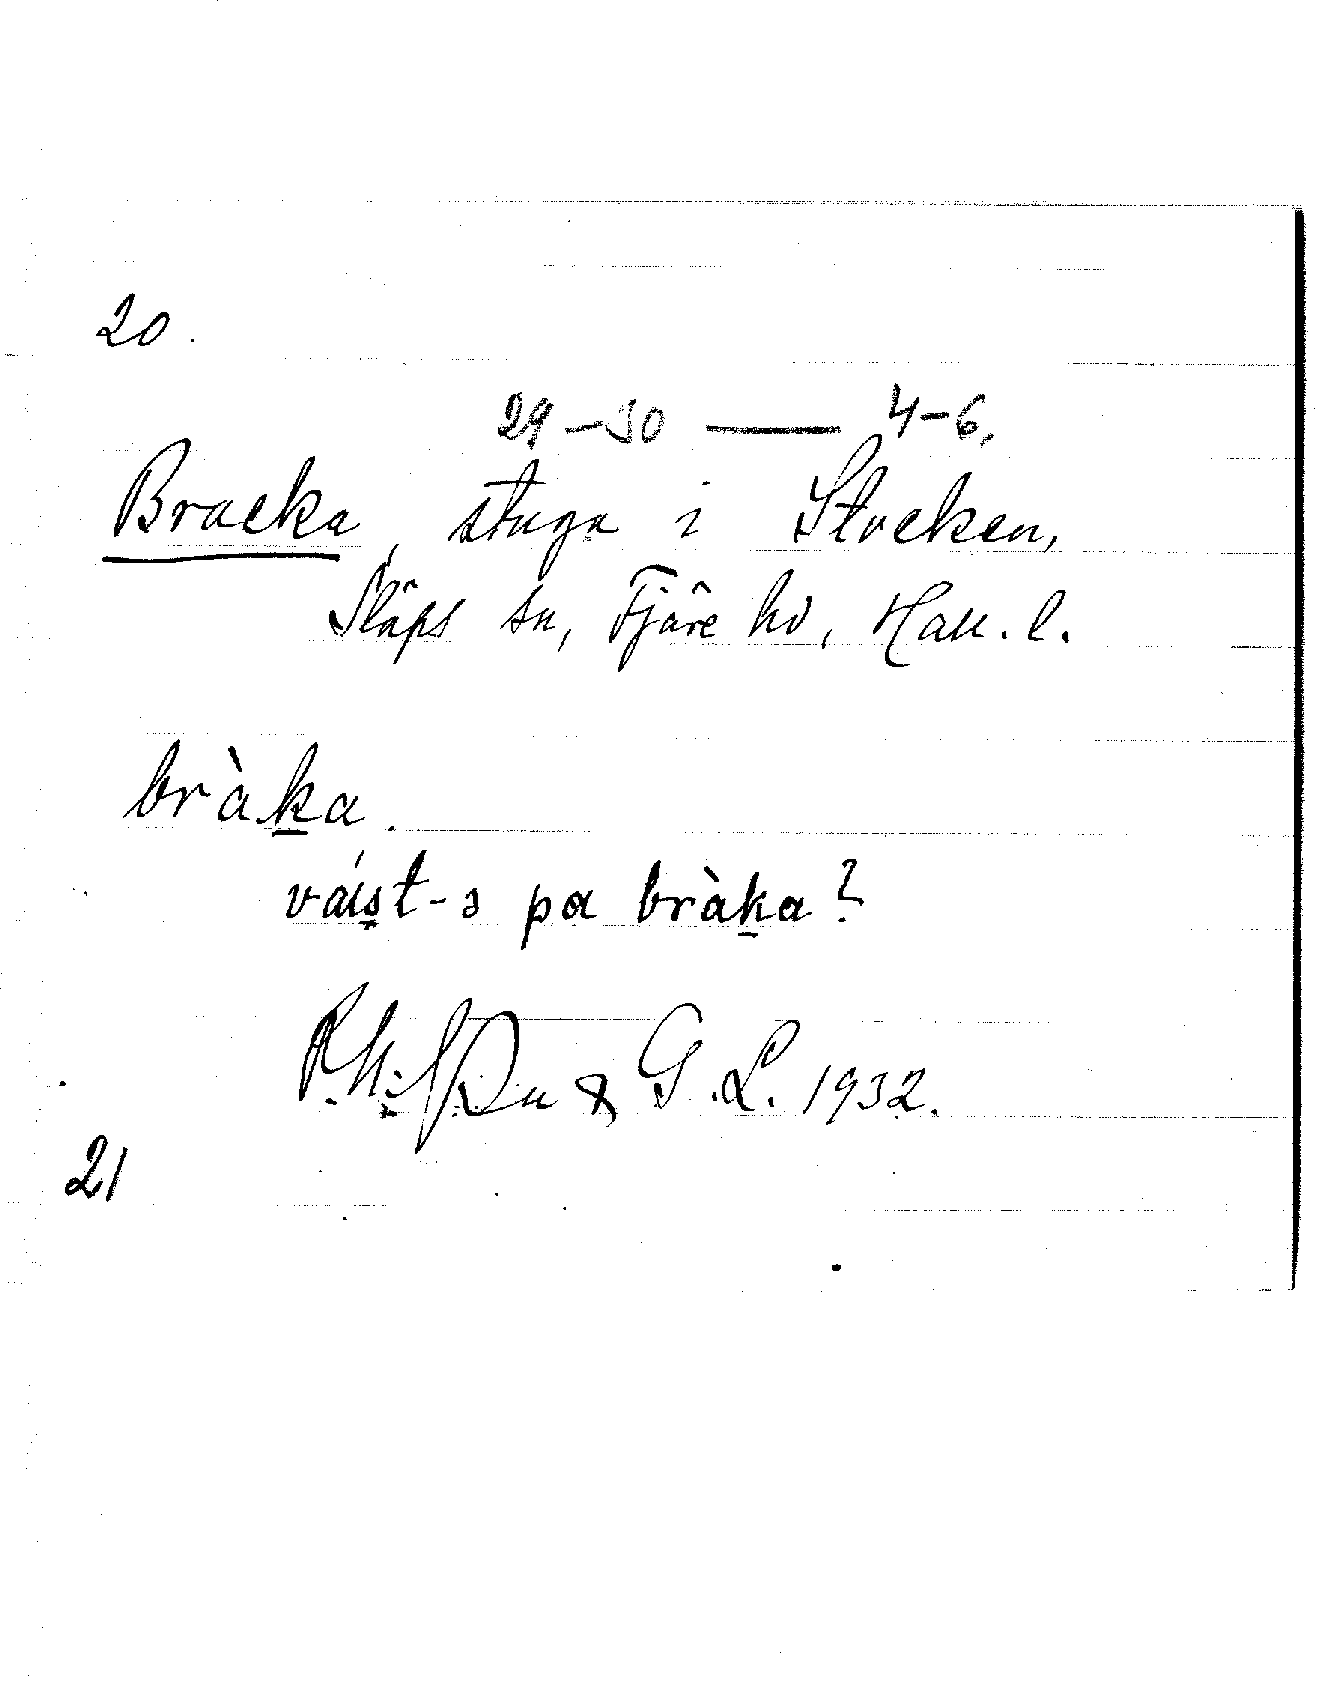 20.
29-30 — 4-6.
Bracka, stuga i Stocken,
Släps sn, Fjäre hd, Hall. l.
bràka.
váist-ə pa bràka?
G. L. 1932.
21